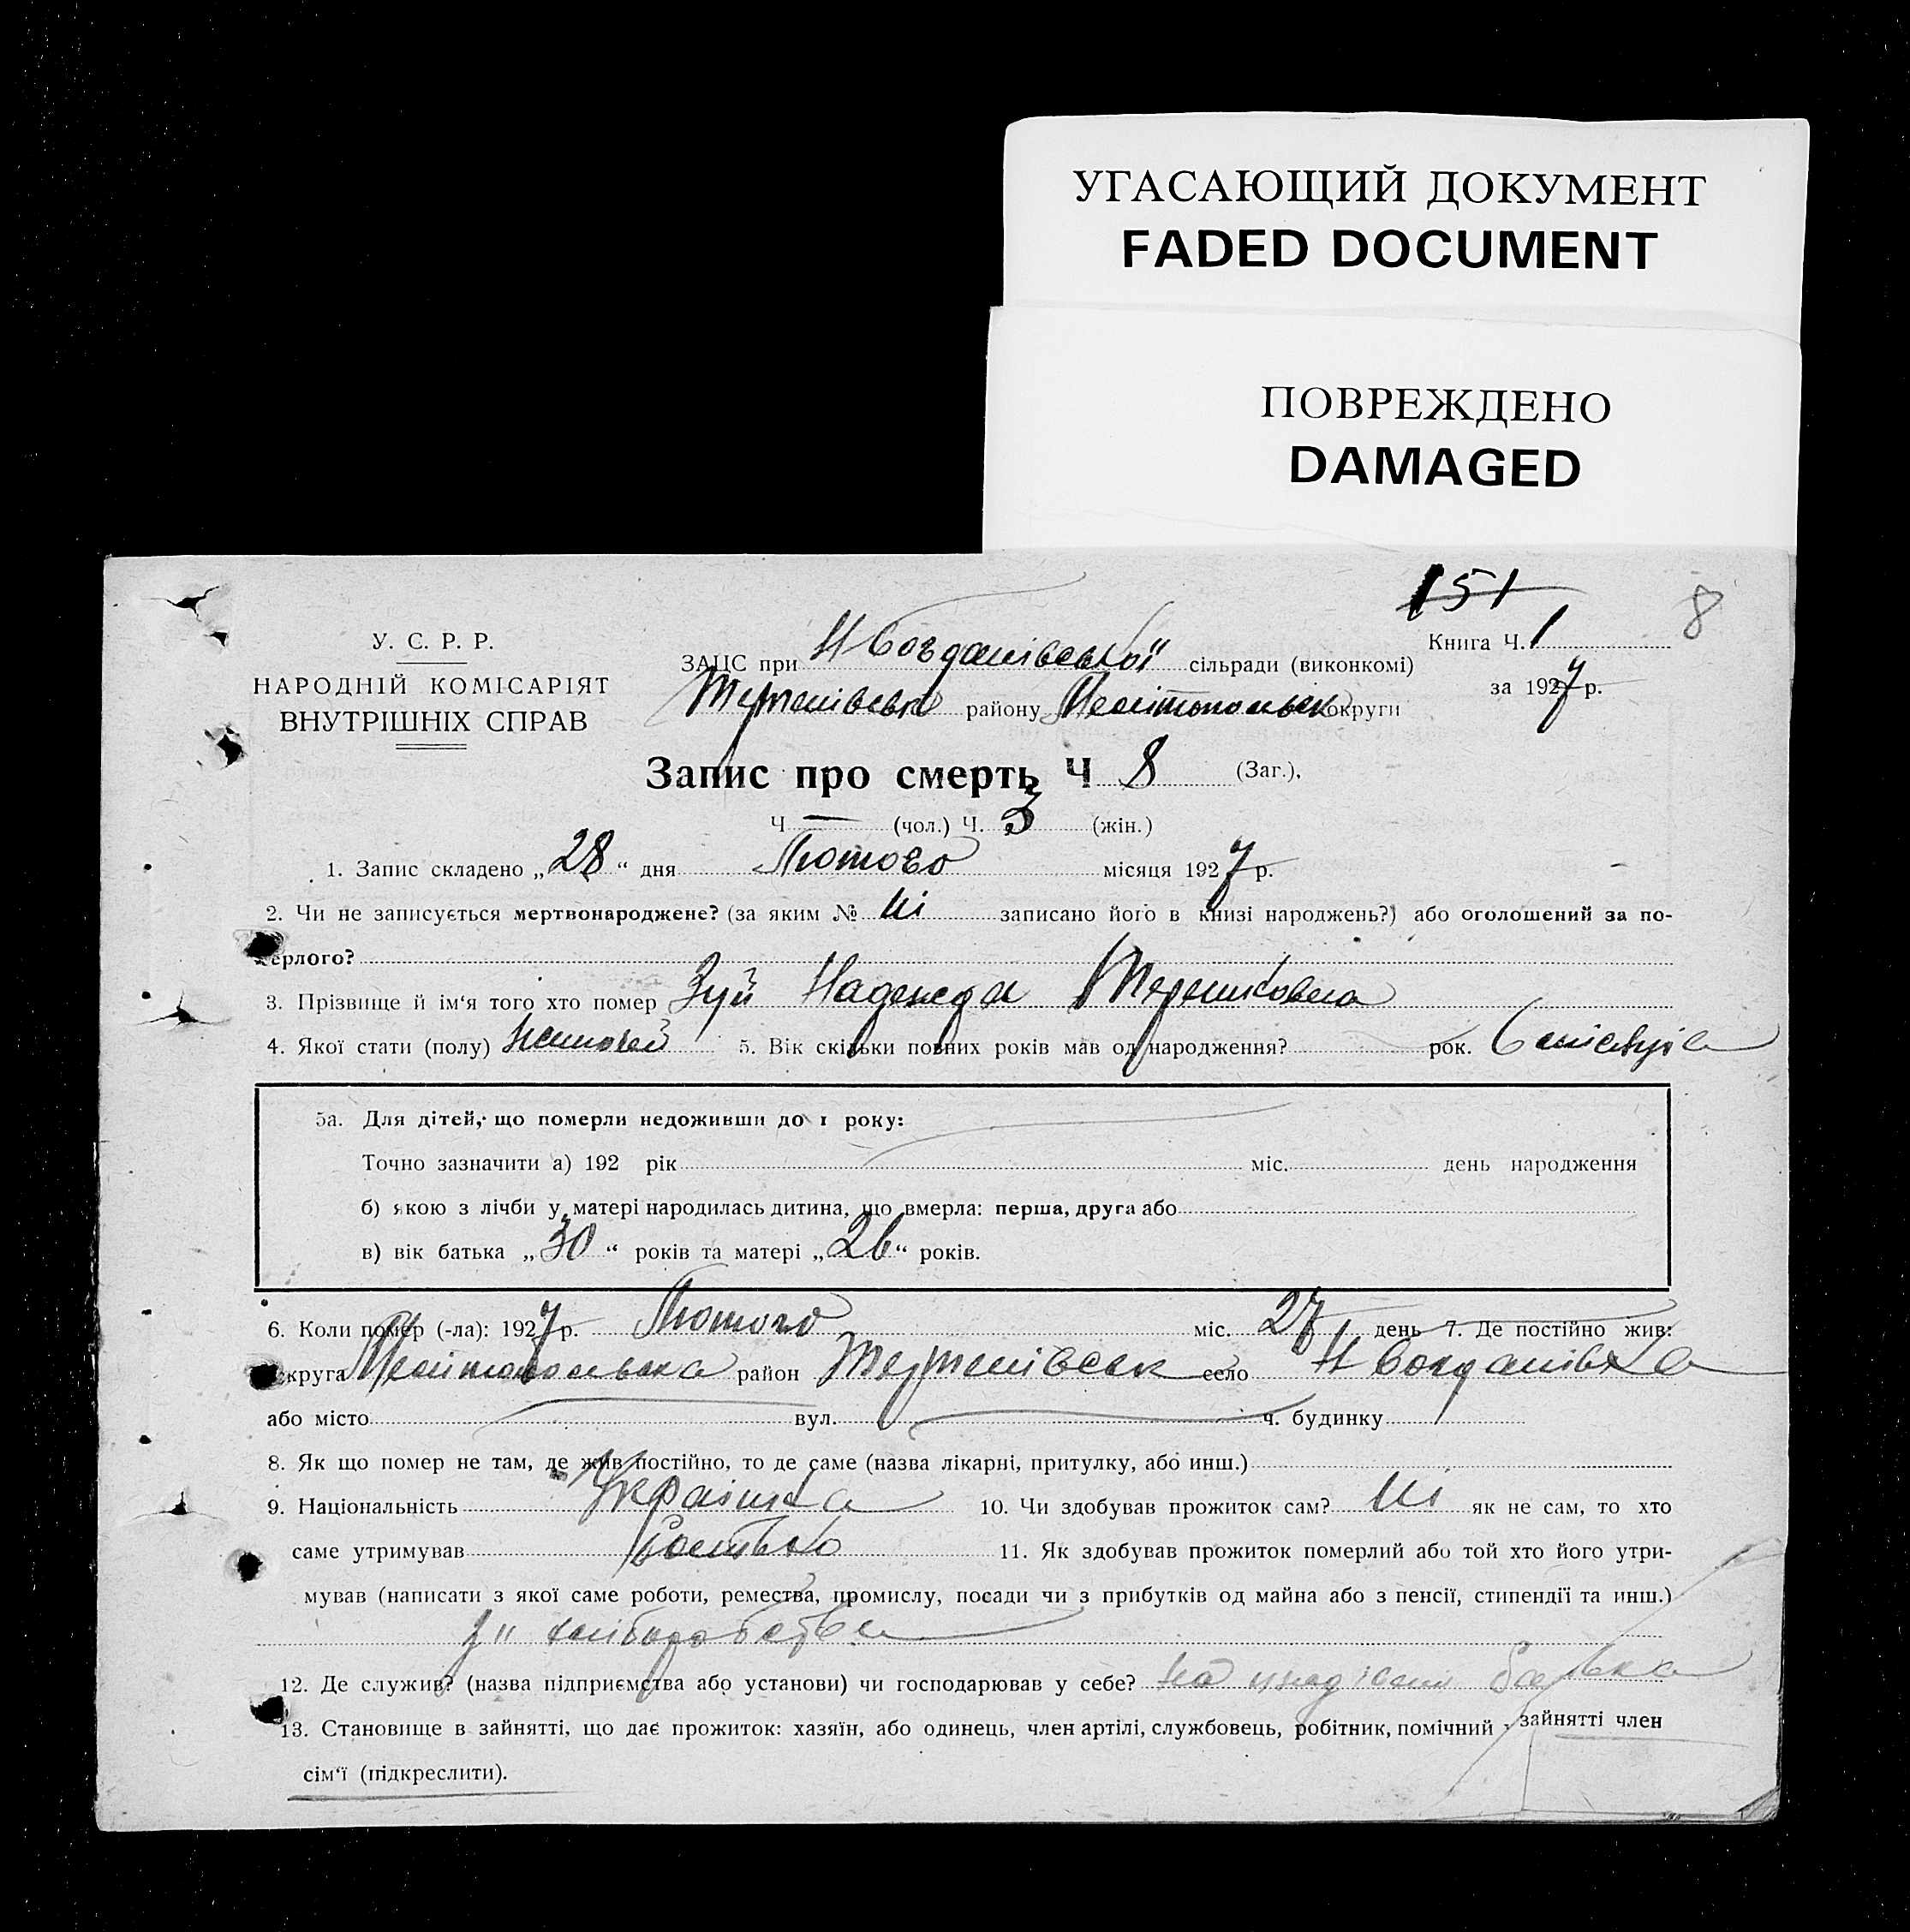 УГАСАЮЩИЙ ДОКУМЕНТ
FADED DOCUMENT
ПОВРЕЖДЕНО
DAMAGED
151
8
У. С. Р. Р.
НАРОДНІЙ КОМІСАРІЯТ
ВНУТРІШНІХ СПРАВ
Книга Ч. 1
за 1927 р.
ЗАЦС при Н Богданівської сільради (виконкомі)
району Мелітопольск округи
Запис про смерть Ч 8 (Заг.),
Ч — (чол.) Ч. 3 (жін.)
1. Запис складено „28“ дня Лютого місяця 1927 р.
2. Чи не записується мертвонароджене? (за яким № ні записано його в книзі народжень?) або оголошений за по-
ерлого?
3. Прізвище й ім‘я того хто помер Зуй Надежда Терешковна
4. Якої стати (полу) 5. Вік скільки повних років мав од народження? рок. 6 місяців
5а. Для дітей, що померли недоживши до 1 року:
Точно зазначити а) 192 рік міс. день народження
б) якою з лічби у матері народилась дитина, що вмерла: перша, друга або
в) вік батька „30“ років та матері „26“ років.
6. Коли помер (-ла): 1927 р. Лютого міс. 27 день 7. Де постійно жив:
круга Мелітопольска район село Н Богданівка
або місто вул. ч. будинку
8. Як що помер не там, де жив постійно, то де саме (назва лікарні, притулку, або инш.)
9. Національність Українка 10. Чи здобував прожиток сам? ні як не сам, то хто
саме утримував батько 11. Як здобував прожиток померлий або той хто його утри-
мував (написати з якої саме роботи, ремества, промислу, посади чи з прибутків од майна або з пенсії, стипендії та инш.)
з хліборобства
12. Де служив? (назва підприємства або установи) чи господарював у себе? на наділі батька
13. Становище в зайнятті, що дає прожиток: хазяїн, або одинець, член артілі, службовець, робітник, помічний зайнятті член
сім‘ї (підкреслити).